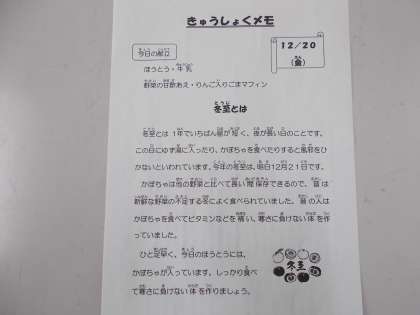 きゅうしょくメモ
12/20
(金)
今日の献立
ほうとう・牛乳
野菜の甘酢あえ・りんご入りごまマフィン
冬至とは
冬至とは1年でいちばん昼が短く、夜が長い日のことです。
この日にゆず湯に入ったり、かぼちゃを食べたりすると風邪をひ
かないといわれています。今年の冬至は、明日12月21日です。
かぼちゃは他の野菜と比べて長い間保存できるので、昔は
新鮮な野菜の不足する冬によく食べられていました。昔の人は
かぼちゃを食べてビタミンなどを補い、寒さに負けない体を作
っていました。
ひと足早く、今日のほうとうには、
かぼちゃが入っています。しっかり食べ
て寒さに負けない体を作りましょう。
冬至